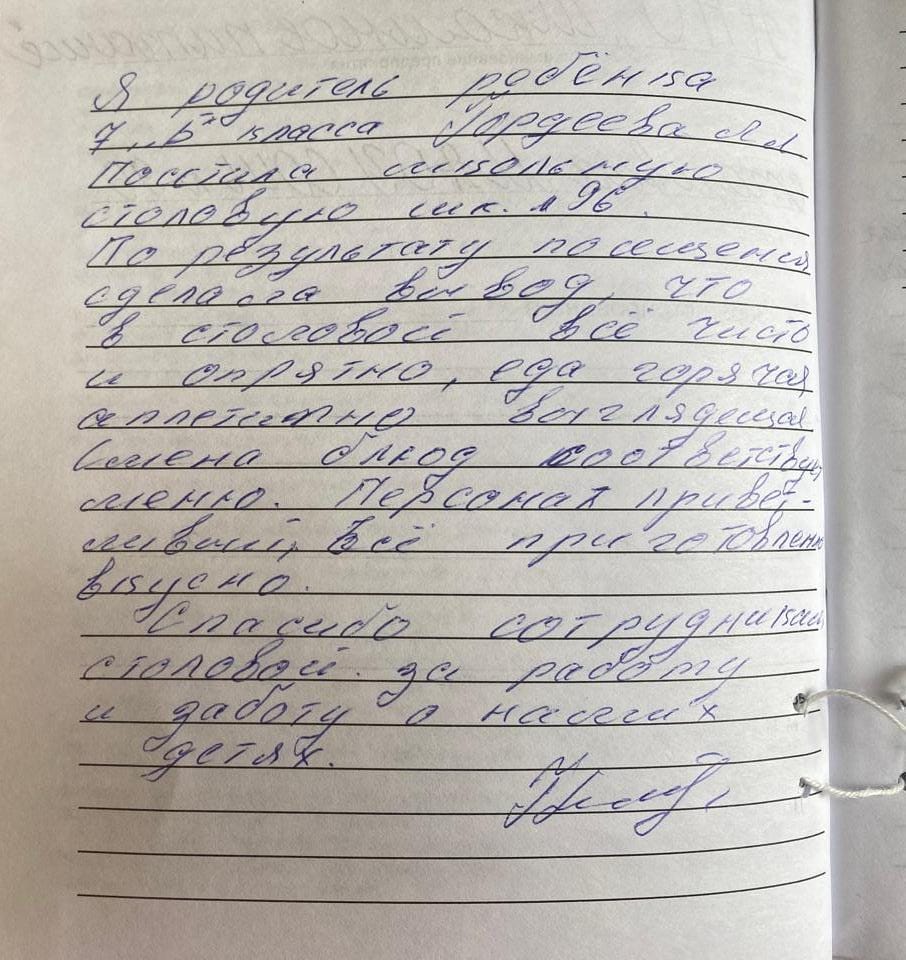 Я родитель ребёнка
7 „Б" класса Гордеева Л Л
Посетила школьную
столовую шк. №96.
По результату посещения
сделала вывод, что
в столовой всё чисто
и опрятно, еда горячая
аппетитно выглядещая
Смена блюд соответствует
меню. Персонал привет-
ливый, всё приготовленно
вкусно.
Спасибо сотрудникам
столовой за работу
и заботу о наших
детях.